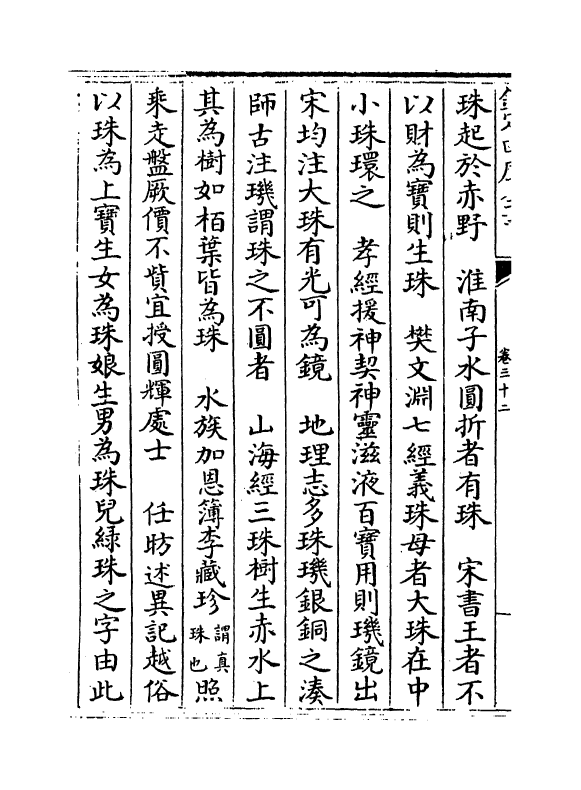 珠起於赤野　淮南子水圓折者有珠　宋書王者不
以財為寶則生珠　樊文淵七經義珠母者大珠在中
小珠環之　孝經援神契神靈滋液百寶用則璣鏡出
宋均注大珠有光可為鏡　地理志多珠璣銀銅之湊
師古注璣謂珠之不圓者　山海經三珠樹生赤水上
其為樹如栢葉皆為珠　水族加恩簿李藏珍謂真珠也照
乘走盤厥價不貲宜授圓輝處士　任昉述異記越俗
以珠為上寶生女為珠娘生男為珠兒綠珠之字由此
卷三十二